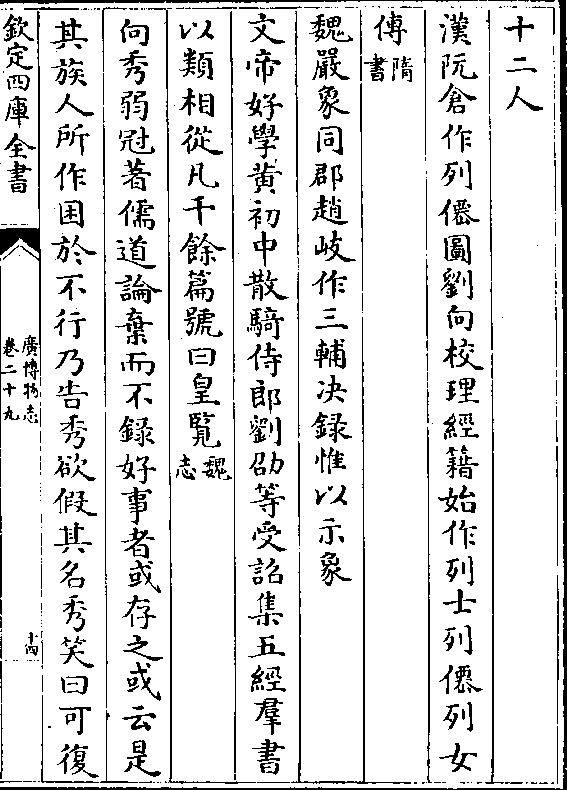 十二人
漢阮倉作列僊圖劉向校理經籍始作列士列僊列女
傳隋書
魏嚴象同郡趙岐作三輔决録惟以示象
文帝好學黄初中散騎侍郎劉劭等受詔集五經羣書
以類相從凡千餘篇號曰皇覧魏志
向秀弱冠著儒道論棄而不録好事者或存之或云是
其族人所作困於不行乃告秀欲假其名秀笑曰可復
欽定四庫全書
廣博物志
卷二十九
十四